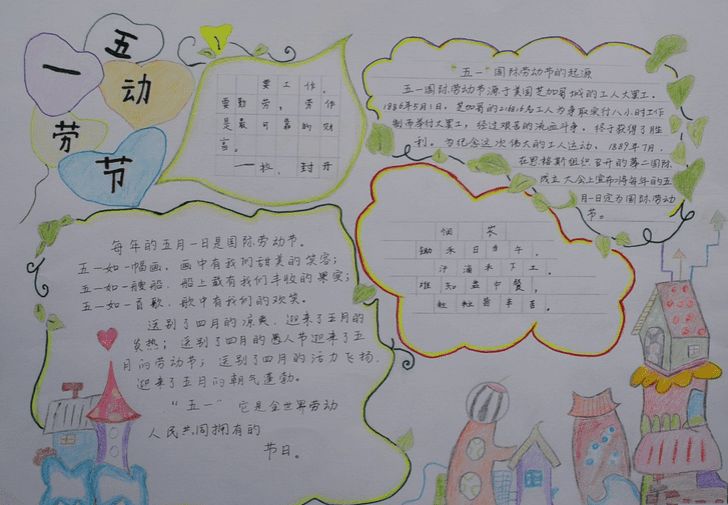 五
一
动
劳
节
要工作,
要勤劳,劳作
是最可靠的财
富。
——拉.封
“五一”国际劳动节的起源
五一国际劳动节源于美国芝加哥城的工人大罢工。
1886年5月1日,芝加哥的21.6万名工人为争取实行八小时工作
制而举行大罢工,经过艰苦的流血斗争,终于获得了胜
利。为纪念这次伟大的工人运动,1889年7月,
在恩格斯组织召开的第二国际
成立大会上宣布将每年的五
月一日定为国际劳动
节。
悯农
锄禾日当午,
汗滴禾下土。
谁知盘中餐,
粒粒皆辛苦。
每年的五月一日是国际劳动节。
五一如一幅画,画中有我们甜美的笑容;
五一如一艘船,船上载有我们丰收的果实;
五一如一首歌,歌中有我们的欢笑。
送别了四月的凉爽,迎来了五月的
炎热;送别了四月的愚人节迎来了五
月的劳动节;送别了四月的活力飞扬,
迎来了五月的朝气蓬勃。
“五一”它是全世界劳动
人民共同拥有的
节日。